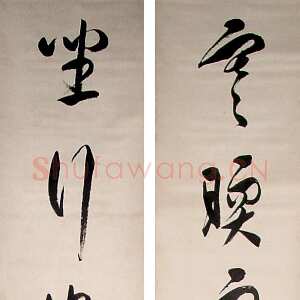 寒暖
坐行
Shufawang.CN